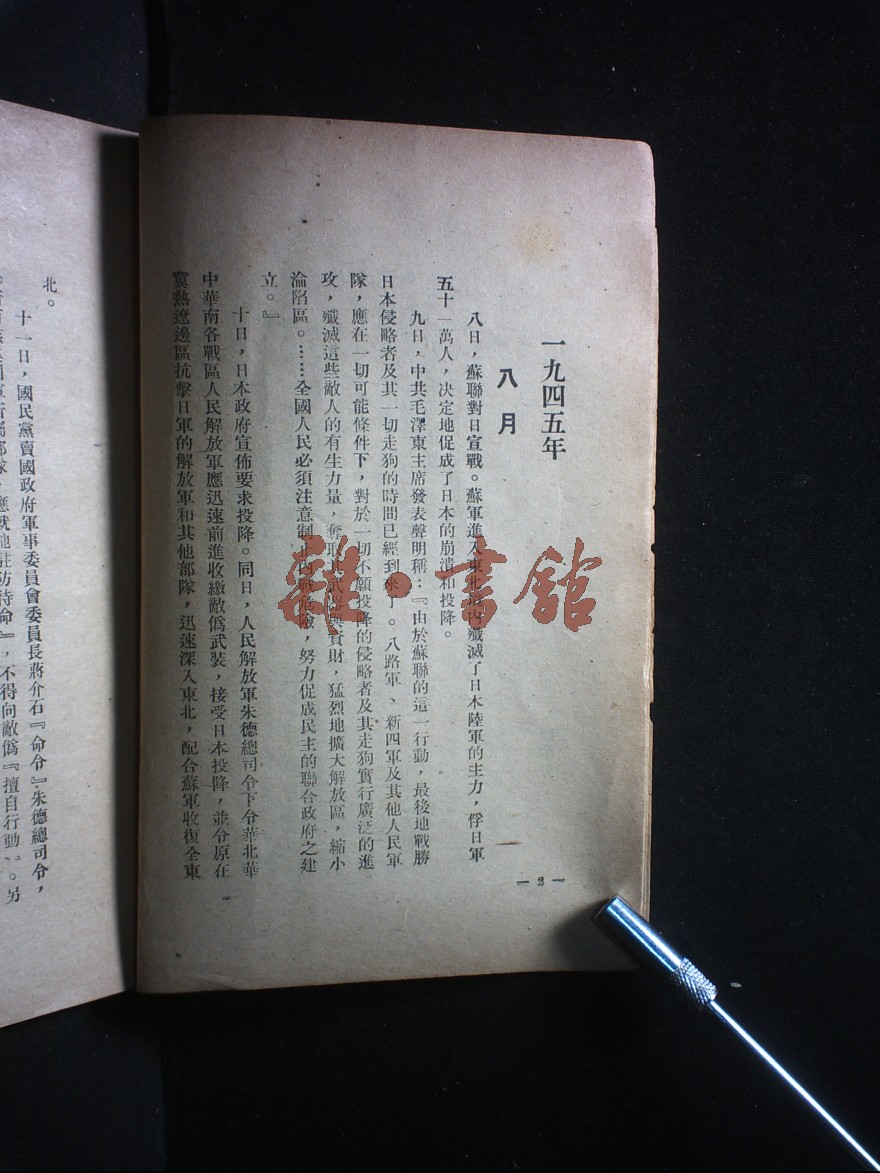 一九四五年
八月
八日，蘇聯對日宣戰。蘇軍進入東北境內殲滅了日本陸軍的主力，俘日軍
五十一萬人，決定地促成了日本的崩潰和投降。
九日，中共毛澤東主席發表聲明稱：『由於蘇聯的這一行動，最後地戰勝
日本侵略者及其一切走狗的時間已經到來了。八路軍、新四軍及其他人民軍
隊，應在一切可能條件下，對於一切不願投降的侵略者及其走狗實行廣泛的進
攻，殲滅這些敵人的有生力量，奪取其武器與資財，猛烈地擴大解放區，縮小
淪陷區。……全國人民必須注意制止內戰危險，努力促成民主的聯合政府之建
立。』
十日，日本政府宣佈要求投降。同日，人民解放軍朱德總司令下令華北華
中華南各戰區人民解放軍應迅速前進收繳敵僞武裝，接受日本投降，並令原在
冀熱遼邊區抗擊日軍的解放軍和其他部隊，迅速深入東北，配合蘇軍收復全東
— 2 —
北。
十一日，國民黨賣國政府軍事委員會委員長蔣介石『命令』朱德總司令，
應就地駐防待命』，不得向敵僞『擅自行動』。另
雜·書館